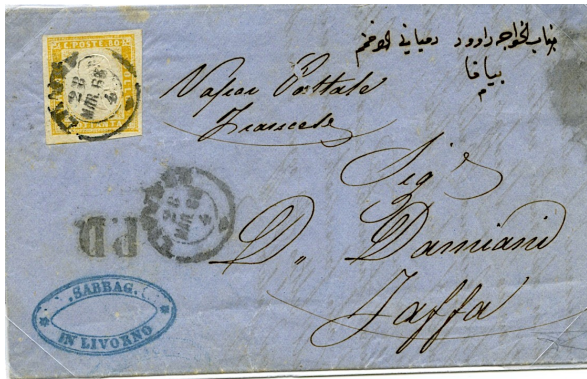 C. POSTE. BO
28
MAR. 63
جناب الخواجه داوود دمياني الافخم
بيافا
Vapor Postale
Francese
28
MAR. 63
P.D.
Sig.
D. Damiani
Jaffa
SABBAG
IN LIVORNO